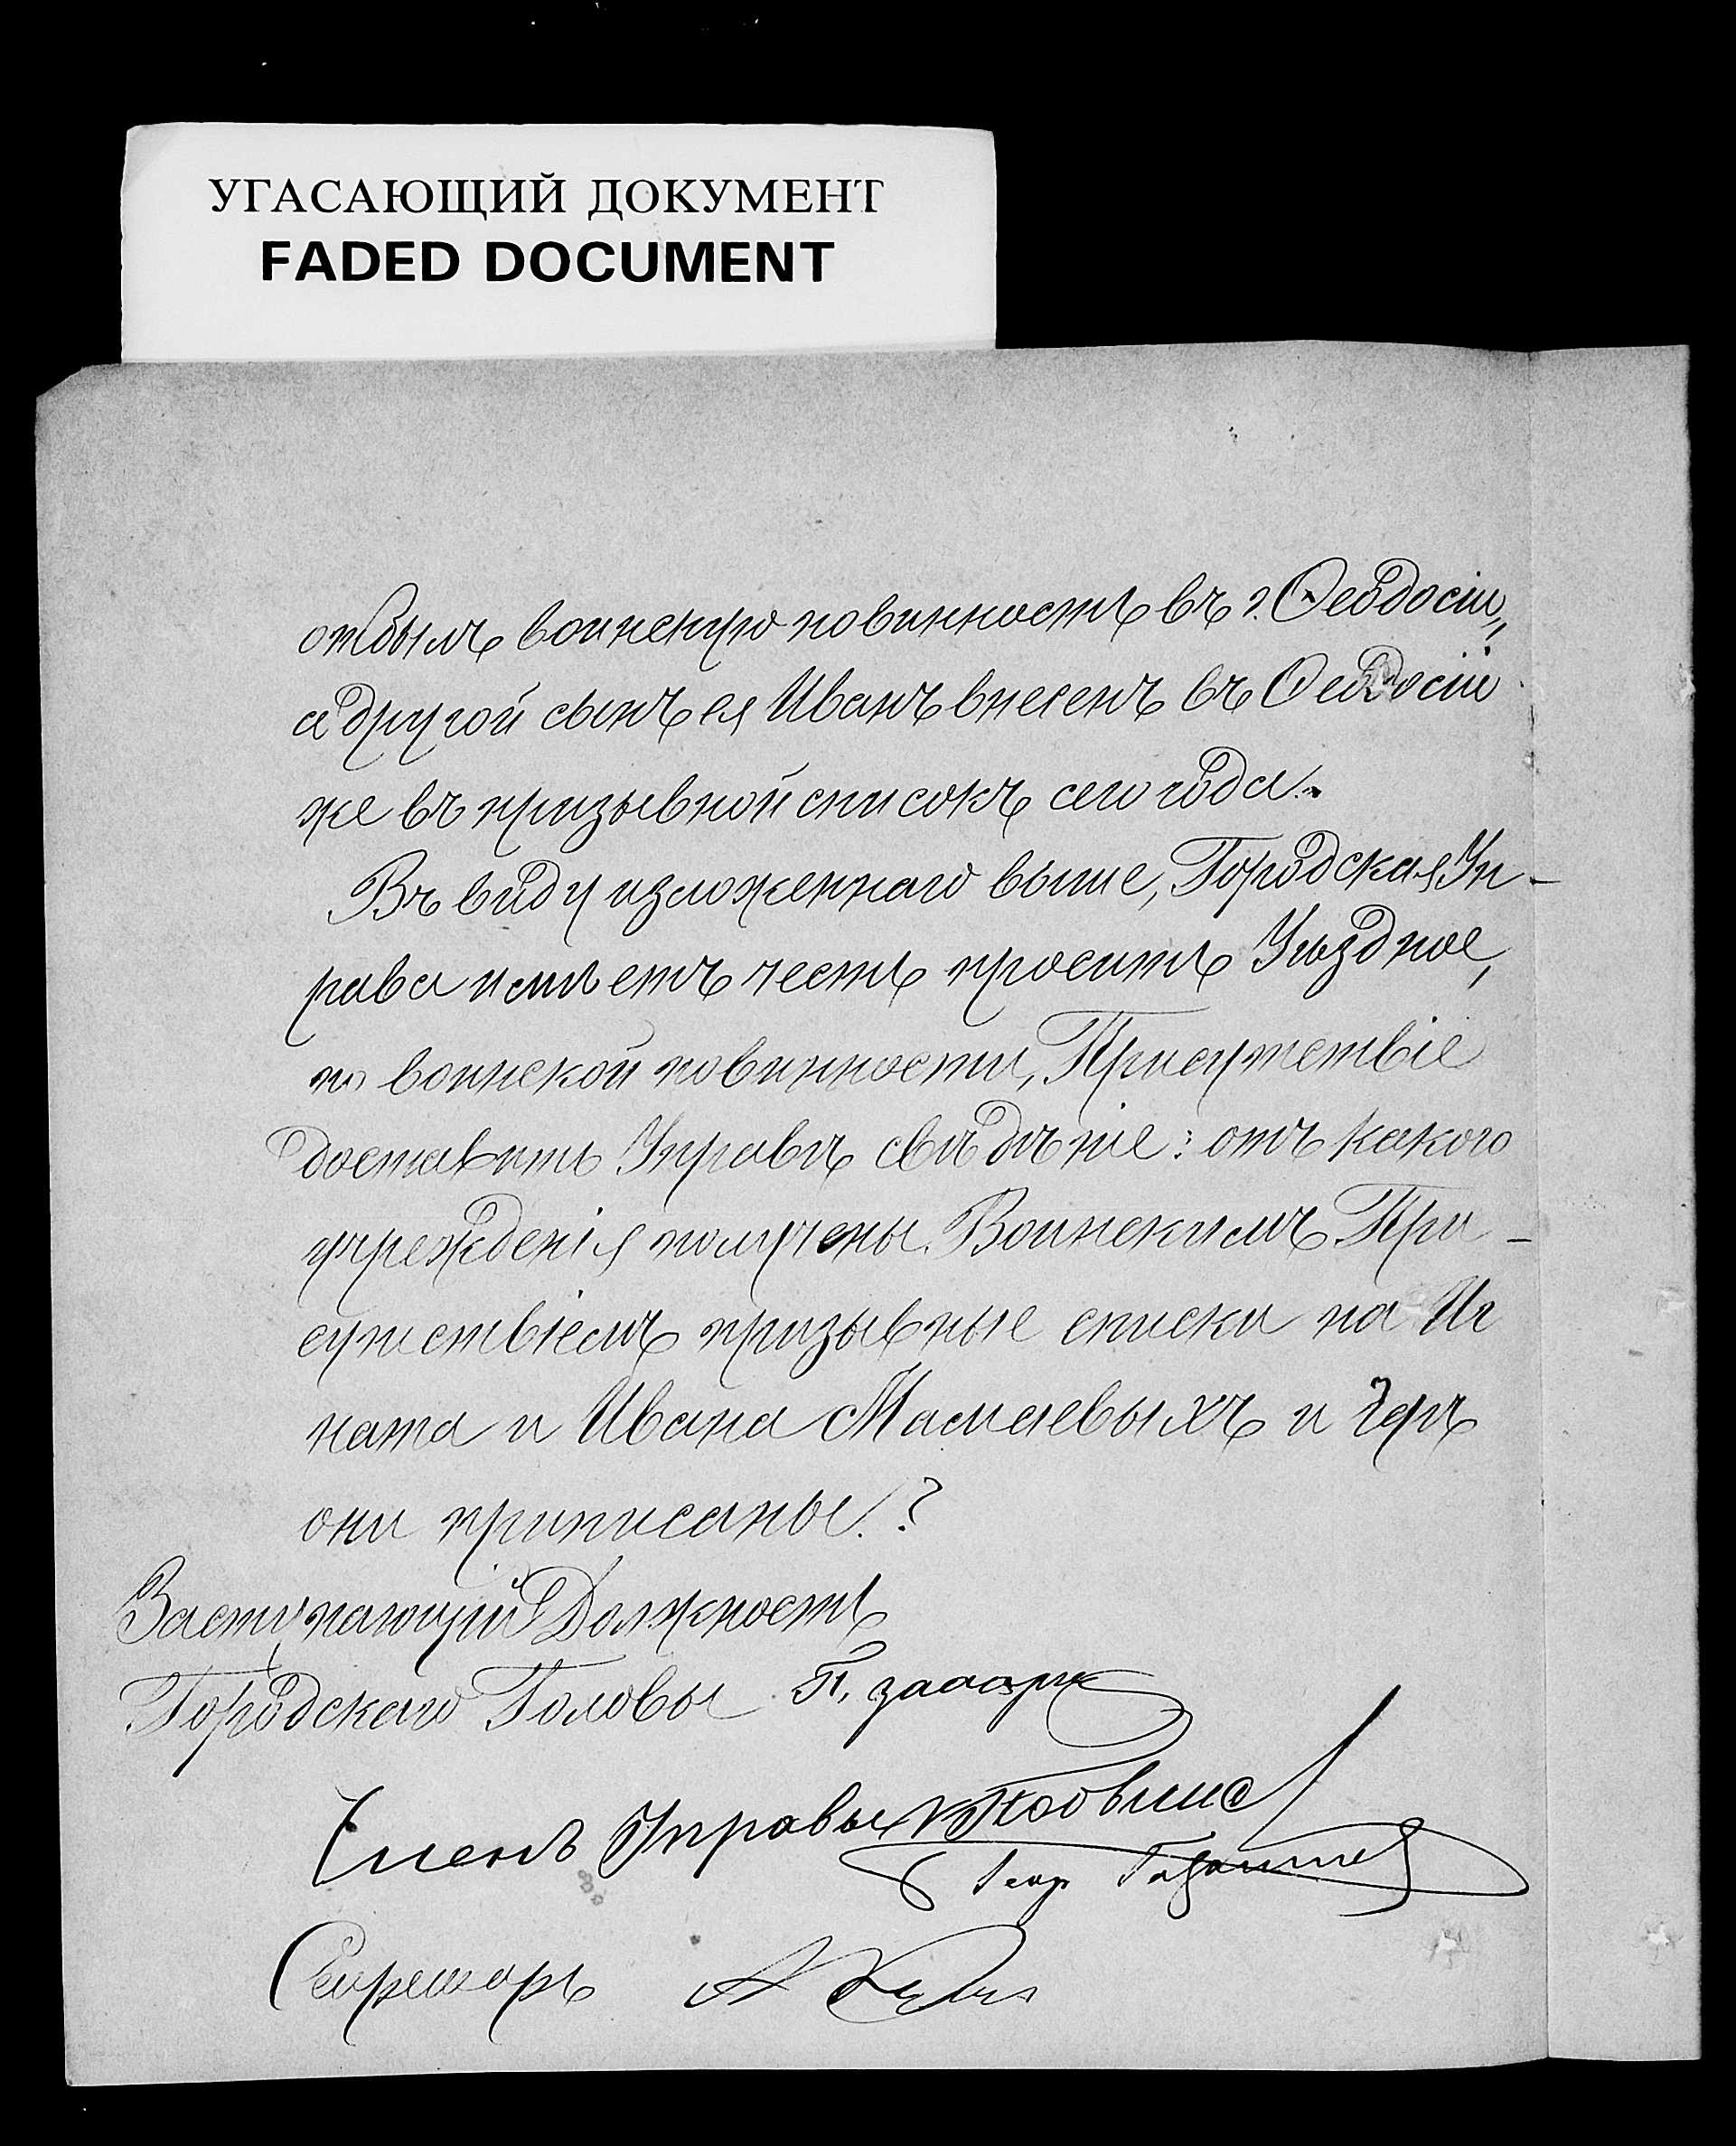 УГАСАЮЩИЙ ДОКУМЕНТ
FADED DOCUMENT
отбылъ воинскую повинность въ г. Ѳеодосіи,
а другой сынъ ея Иванъ внесенъ въ Ѳеодосіи
же въ призывной списокъ сего года.
Въ виду изложеннаго выше, Городская Уп-
рава имѣетъ честь просить Уѣздное,
по воинской повинности, Присутствіе
доставить Управѣ свѣдѣніе: отъ какого
учрежденія получены Воинскимъ При-
сутствіемъ призывные списки на Иг
ната и Ивана Мамаевыхъ и гдѣ
они приписаны?
Заступающій Должность
Городскаго Головы
Членъ Управы
Секретарь